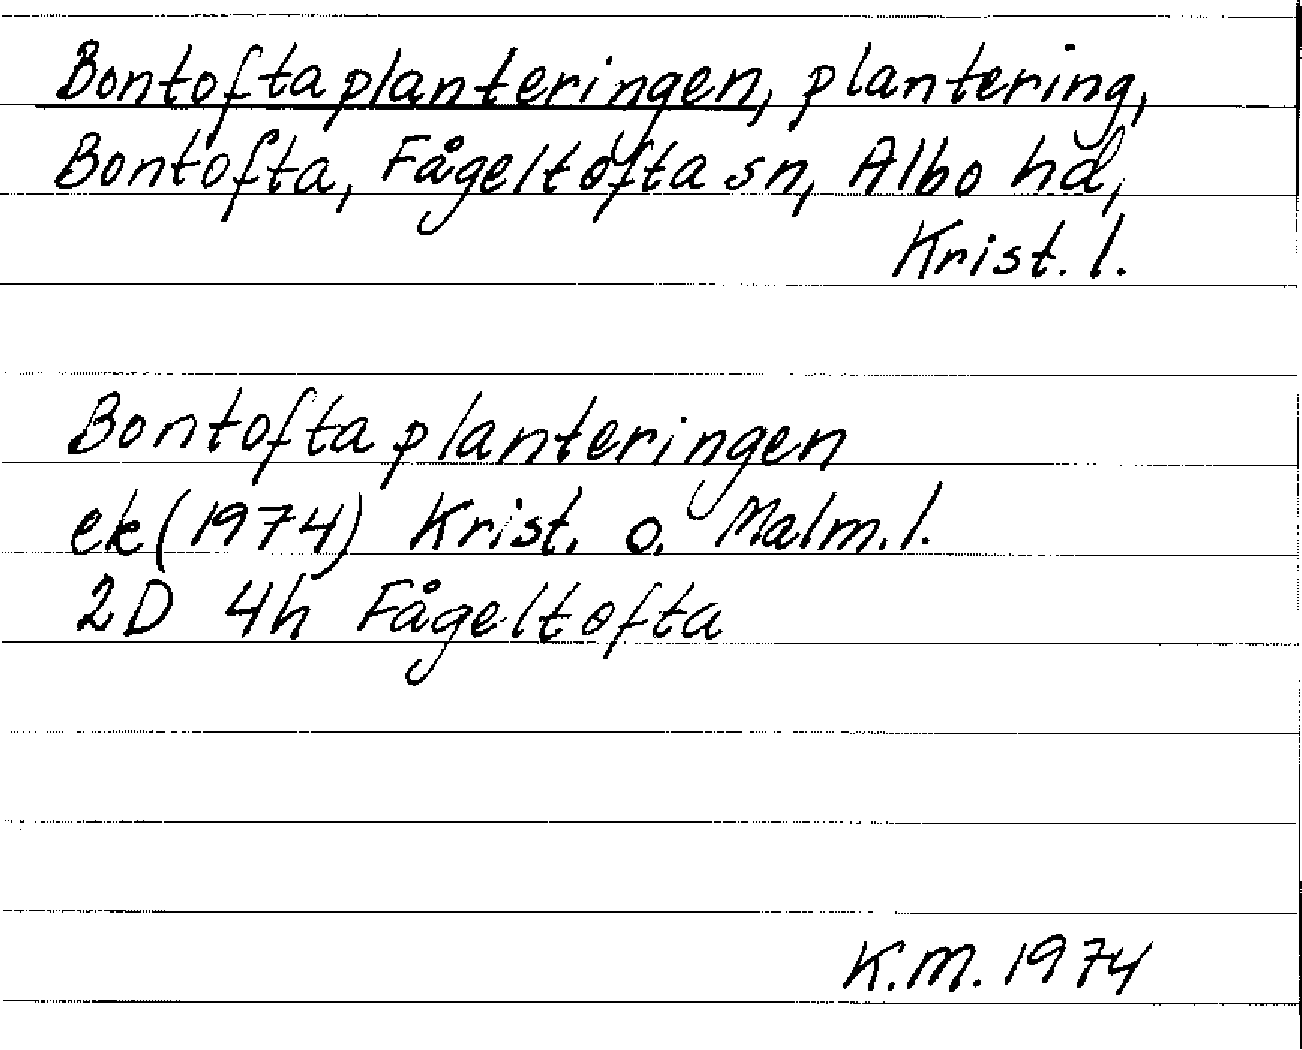 Bontoftaplanteringen, plantering,
Bontofta, Fågeltofta sn, Albo hd,
Krist. l.
Bontoftaplanteringen
ek (1974) Krist. o. Malm. l.
2D 4h Fågeltofta
K.M. 1974